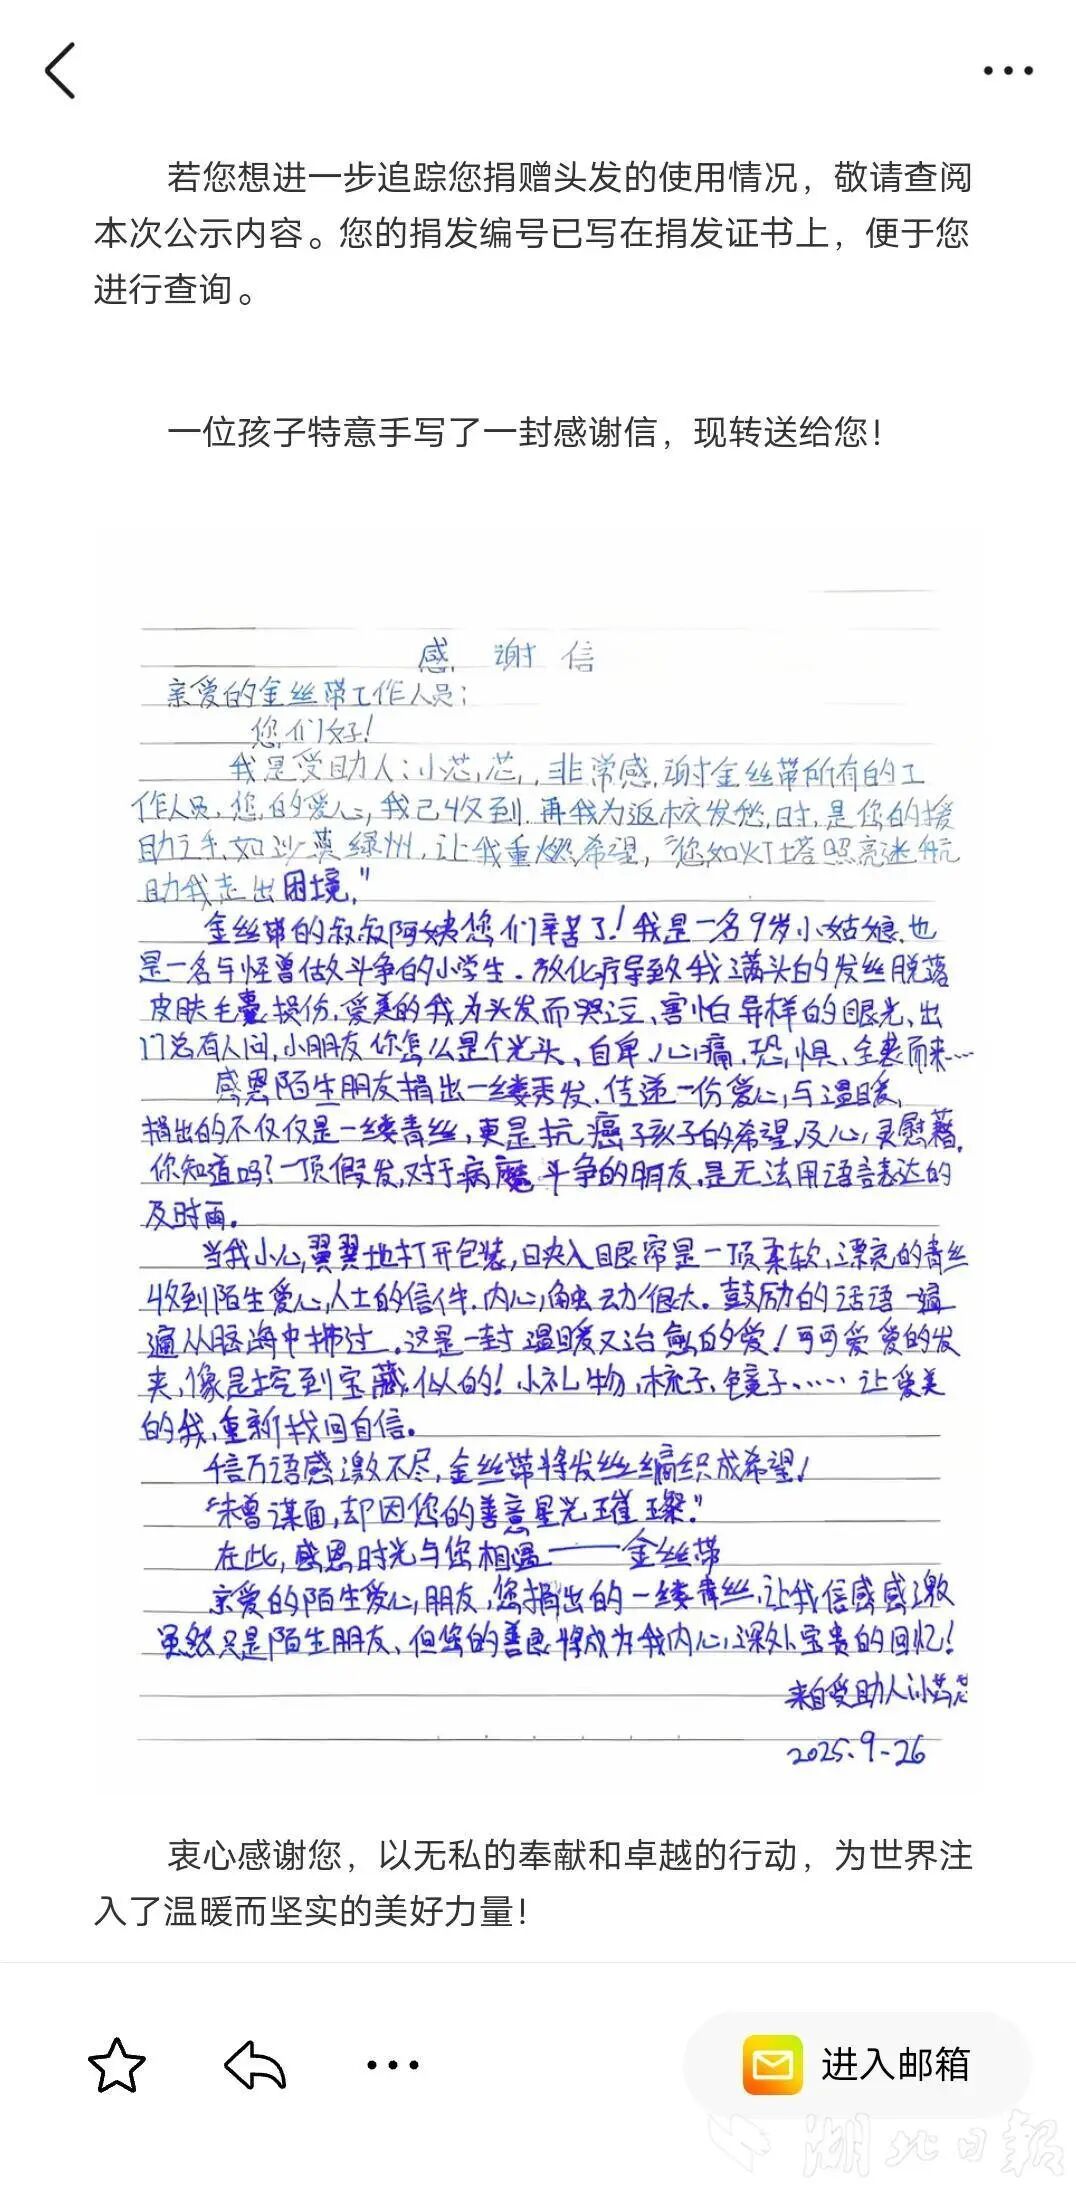 若您想进一步追踪您捐赠头发的使用情况，敬请查阅
本次公示内容。您的捐发编号已写在捐发证书上，便于您
进行查询。
一位孩子特意手写了一封感谢信，现转送给您！
感谢信
亲爱的金丝带工作人员：
您们好！
我是受助人：小芯芯，非常感谢金丝带所有的工
作人员，您的爱心，我已收到。再我为返校发愁时，是您的援
助之手，如沙漠绿州，让我重燃希望，“您如灯塔照亮迷航
助我走出困境，”
金丝带的叔叔阿姨您们辛苦了！我是一名9岁小姑娘，也
是一名与怪兽做斗争的小学生。放化疗导致我满头的发丝脱落
皮肤毛囊损伤，爱美的我为头发而哭泣、害怕异样的眼光、出
门总有人问，小朋友你怎么是个光头、自卑、心痛、恐惧、全袭而来…
感恩陌生朋友捐出一缕秀发，传递一份爱心与温暖，
捐出的不仅仅是一缕青丝，更是抗癌子孩子的希望及心灵慰藉，
你知道吗？一顶假发，对于病魔斗争的朋友，是无法用语言表达的
及时雨。
当我小心翼翼地打开包装，映入眼帘是一顶柔软，漂亮的青丝
收到陌生爱心人士的信件，内心触动很大。鼓励的话语一遍
遍从脑海中拂过。这是一封温暖又治愈的爱！可可爱爱的发
夹，像是挖到宝藏似的！小礼物，梳子，镜子……让爱美
的我，重新找回自信。
千言万语感激不尽，金丝带将发丝编织成希望！
“未曾谋面，却因您的善意星光璀璨。”
在此，感恩时光与您相遇——金丝带
亲爱的陌生爱心朋友，您捐出的一缕青丝，让我倍感感激
虽然只是陌生朋友、但您的善良将成为我内心深处宝贵的回忆！
来自受助人小芯芯
2025.9-26
衷心感谢您，以无私的奉献和卓越的行动，为世界注
入了温暖而坚实的美好力量！
进入邮箱
湖北日报